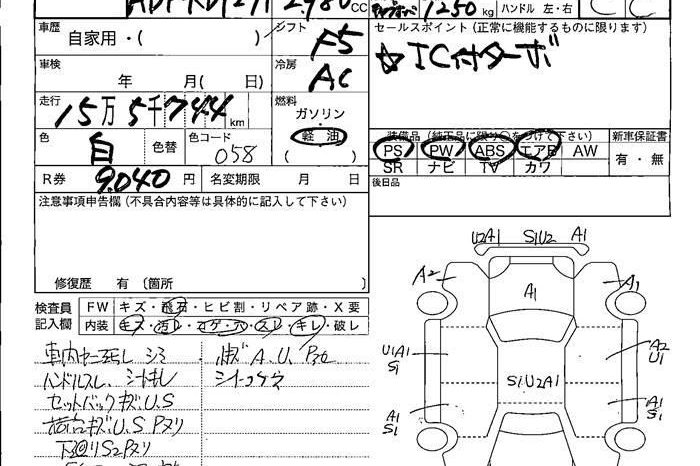 2,980 CC
1250 kg ハンドル 左・右
車歴 自家用・( )
シフト F5
セールスポイント (正常に機能するものに限ります)
☆IC付ターボ
車検 年 月( 日)
冷房 AC
走行 15万5千744 km
燃料 ガソリン
軽油
( )
色 白 色替
色コード 058
装備品 (純正品に限り○をつけて下さい) 新車保証書
PS PW ABS エアB AW 有・無
SR ナビ TV カワ
R券 9,040 円 名変期限 月 日
後日品
注意事項申告欄 (不具合内容等は具体的に記入して下さい)
修復歴 有 (箇所
検査員 FW キズ・飛石・ヒビ割・リペア跡・X要
記入欄 内装 キズ・汚レ・コゲ・穴・スレ・キレ・破レ
ハンドルスレ、シートキレ
セットバックキズ、U.S
荷台キズ、U.S Pヌリ
下廻りS2Pヌリ
U2A1 S1U2 A1
A2 A1 A1
U1A1 S1
A2 U1
S1U2A1
A1 S1
A1 S1